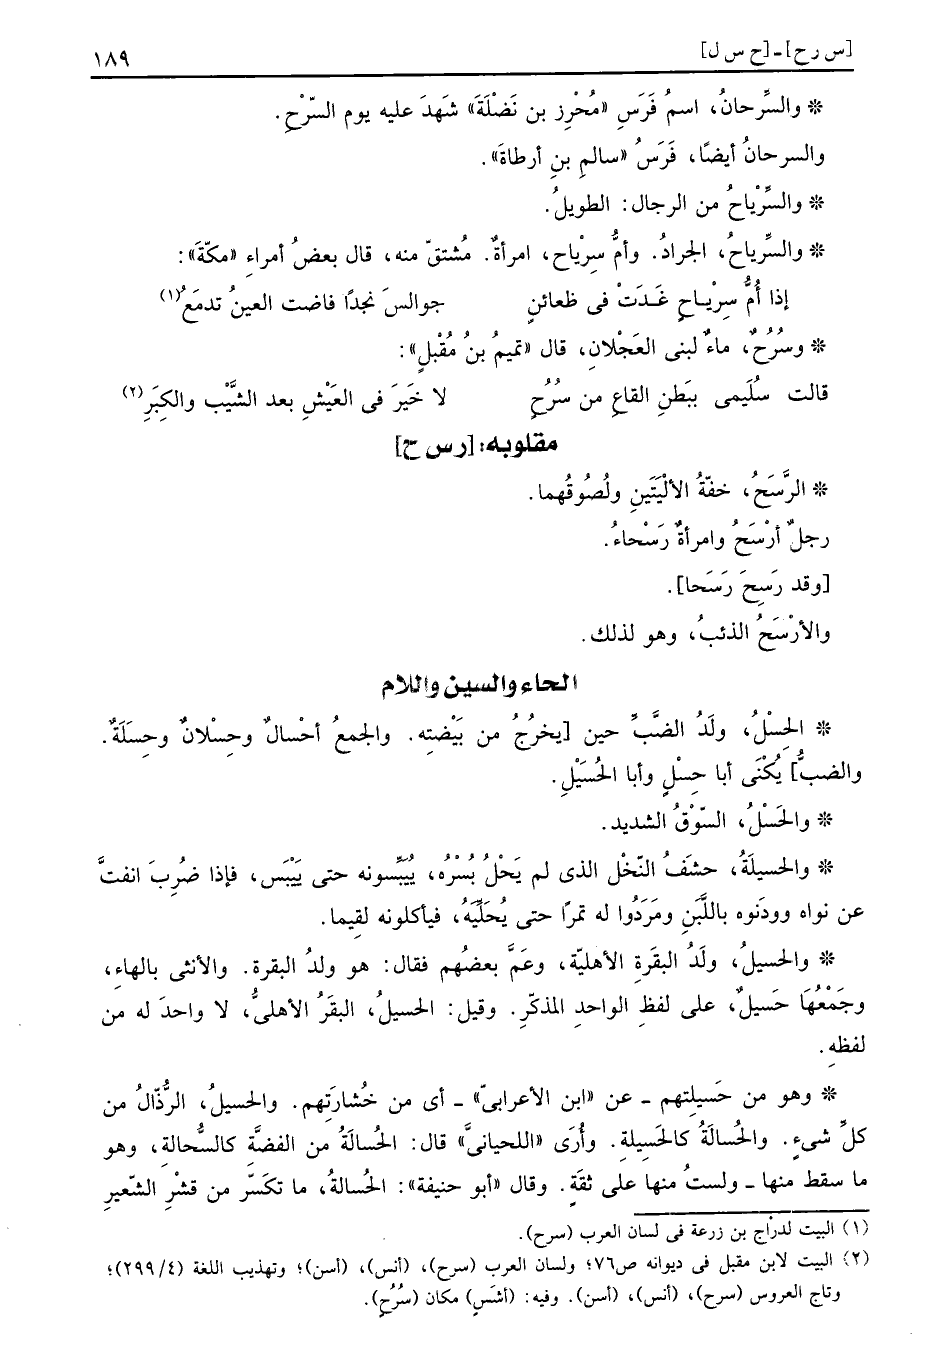 [س ر ح] ـ [ح س ل] ١٨٩
* والسِّرحانُ، اسمُ فَرَسِ «مُحْرِز بن نَضْلَةَ» شَهدَ عليه يوم السّرْحِ.
والسرحانُ أيضًا، فَرَسُ «سالمِ بنِ أرطاةَ».
* والسِّرْياحُ من الرجال: الطويلُ.
* والسِّرياحُ، الجرادُ. وأمُّ سِرْياح، امرأةٌ. مُشتقّ منه، قال بعضُ أمراءِ «مكّةَ»:
إذا أُمُّ سِرْيـاحٍ غَـدَتْ فى ظعائنٍ جوالسَ نجدًا فاضت العينُ تدمَعُ(١)
* وسُرُحٌ، ماءٌ لبنى العَجْلانِ، قال «تميمُ بنُ مُقْبلٍ»:
قالت سُلَيمى ببَطنِ القاعِ من سُرُحٍ لا خَيَرَ فى العَيْشِ بعد الشَّيْب والكِبَرِ(٢)
مقلوبه: [ر س ح]
* الرَّسَحُ، خفّةُ الألْيَتَينِ ولُصُوقُهما.
رجلٌ أرْسَحُ وامرأةٌ رَسْحاءُ.
[وقد رَسِحَ رَسَحا].
والأرْسَحُ الذئبُ، وهو لذلك.
الحاء والسين واللام
* الحِسْلُ، ولَدُ الضَّبِّ حين [يخرُجُ من بَيْضتِه. والجمعُ أحْسالٌ وحِسْلانٌ وحِسَلَةٌ.
والضبُّ] يُكْنَى أبا حِسْلٍ وأبا الحُسَيْلِ.
* والحَسْلُ، السّوْقُ الشديد.
* والحَسيلَةُ، حشَفُ النّخْل الذى لم يَحْلُ بُسْرُه، يُيَبِّسونه حتى يَيْبَس، فإذا ضُرِبَ انفتَّ
عن نواه وودَنوه باللَّبَنِ ومَرَدُوا له تمرًا حتى يُحَلِّيَهُ، فيأكلونه لقِيما.
* والحَسيلُ، ولَدُ البقَرةِ الأهليّة، وعَمَّ بعضُهم فقال: هو ولدُ البقرة. والأنثى بالهاءِ،
وجَمْعُهَا حَسيلٌ، على لفظِ الواحدِ المذكّرِ. وقيل: الحسيلُ، البقَرُ الأهلىُّ، لا واحدَ له من
لفظهِ.
* وهو من حَسيلتِهم ـ عن «ابن الأعرابىّ» ـ أى من خُشارَتِهم. والحسيلُ، الرُّذّالُ من
كلِّ شىءٍ. والحُسالَةُ كالحَسِيلةِ. وأُرَى «اللحيانىَّ» قال: الحُسالَةُ من الفضَّةِ كالسُّحالةِ، وهو
ما سقط منها ـ ولستُ منها على ثقَةٍ. وقال «أبو حنيفة»: الحُسالةُ، ما تكسّر من قشْرِ الشّعيرِ
(١) البيت لدراج بن زرعة فى لسان العرب (سرح).
(٢) البيت لابن مقبل فى ديوانه ص٧٦؛ ولسان العرب (سرح)، (أنس)، (أسن)؛ وتهذيب اللغة (٢٩٩/٤)؛
وتاج العروس (سرح)، (أنس)، (أسن). وفيه: (أشَسٍ) مكان (سُرُحٍ).